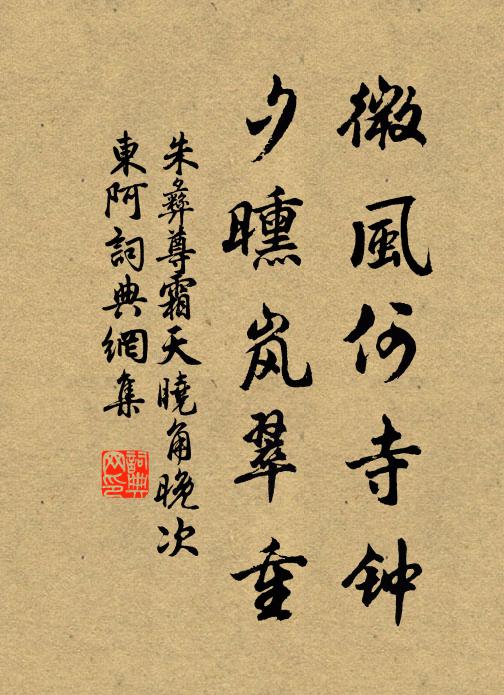 微風何寺钟
夕曛岚翠重
朱彝尊霜天曉角晚次
東阿詞典網集
詞典网印